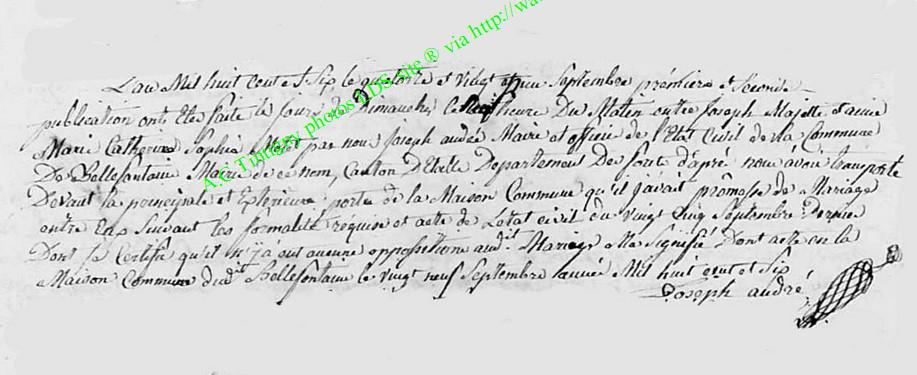 Lan Mil huit cent et Six le quatorte et vingt et un Septembre prémiere et Seconde
publication onts Eté faite le jours de Dimanche, heure Du Matin entre Joseph Majette
Marie Catherine Sophie par nous joseph andré Maire et officie de l'Etat Civil de la Commune
De Bellefontaine Mairie de ce nom, Canton D'Etalle Departement De nous avoir transporté
Devant la principale et Exterieure porte de la Maison Commune qu'il javait prômesse de Mariage
entre Eux Suivant les formalité réquise et acte de Létat civil du vingt Septembre Dernier
Dont je Certifie qu'il n'y a eut aucune oppossitione audit Mariage Me Signifié Dont acte en la
Maison Commune dudit Bellefontaine le vingt neuf Septembre année Mil huit cent et Six
Joseph andré
A.G Tintigny photos TDS site ® via http://wa